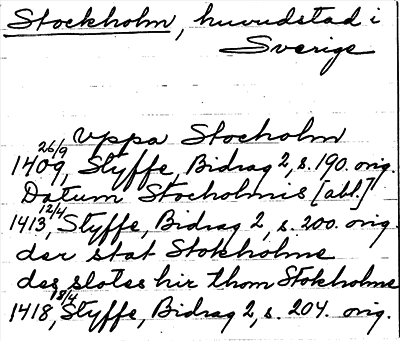 Stockholm, huvudstad i
Sverige
Vppa Stocholm
26/9
1409, Styffe, Bidrag 2, s. 190. orig.
Datum Stocholmis [abl.]
12/4
1413, Styffe, Bidrag 2, s. 200. orig.
der stat Stokholme
des slotes hir thom Stokholme
18/4
1418, Styffe, Bidrag 2, s. 204. orig.